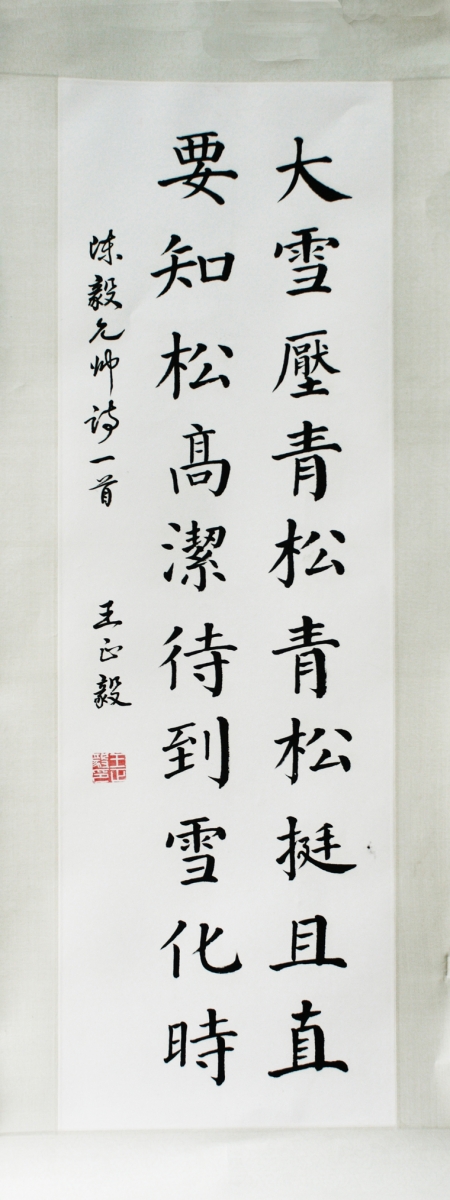 大雪壓青松青松挺且直
要知松高潔待到雪化時
陳毅元帅诗一首
王正毅
王正毅印